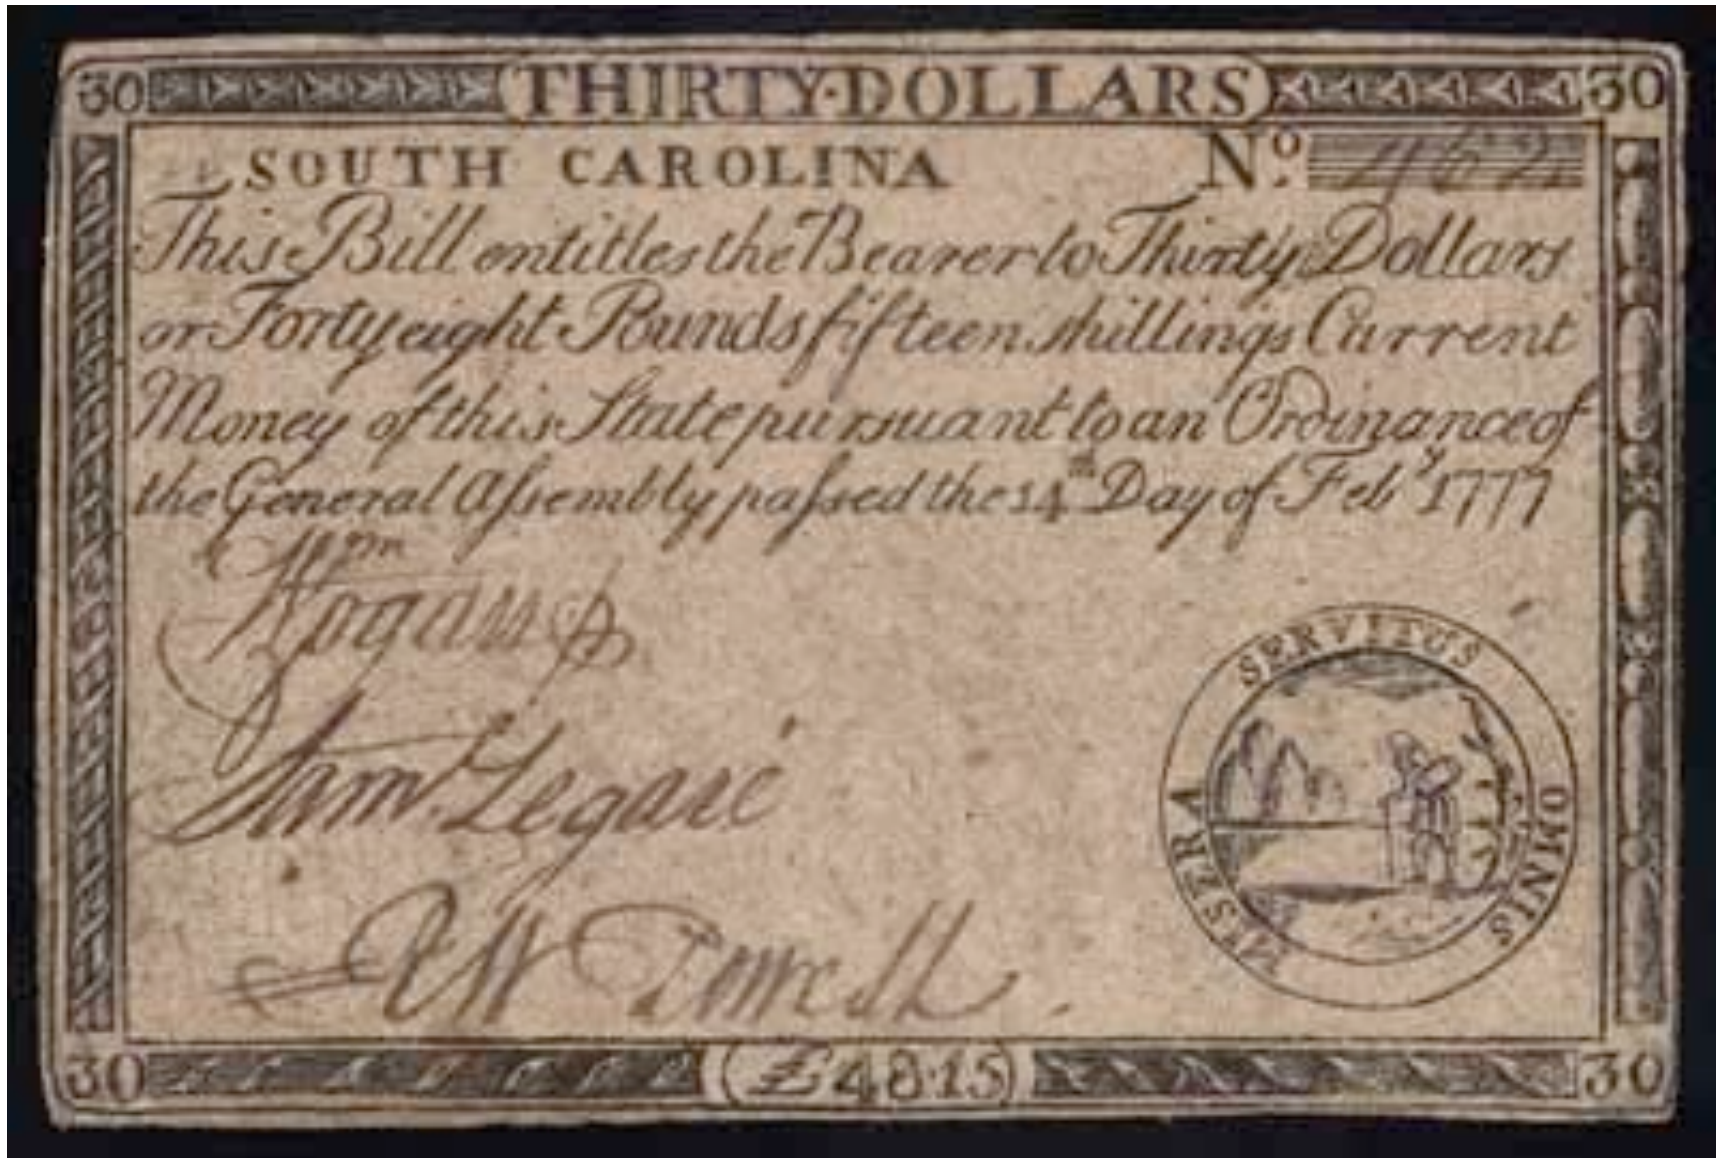 30 THIRTY·DOLLARS 30
SOUTH CAROLINA No. 462
This Bill entitles the Bearer to Thirty Dollars
or Forty eight Pounds fifteen shillings Current
Money of this State pursuant to an Ordinance of
the General Assembly passed the 14th Day of Feby 1777
Wm
Logan
Saml Legaré
RW Powell
SERVITUS
OMNIS
MISERA
30 £48·15 30